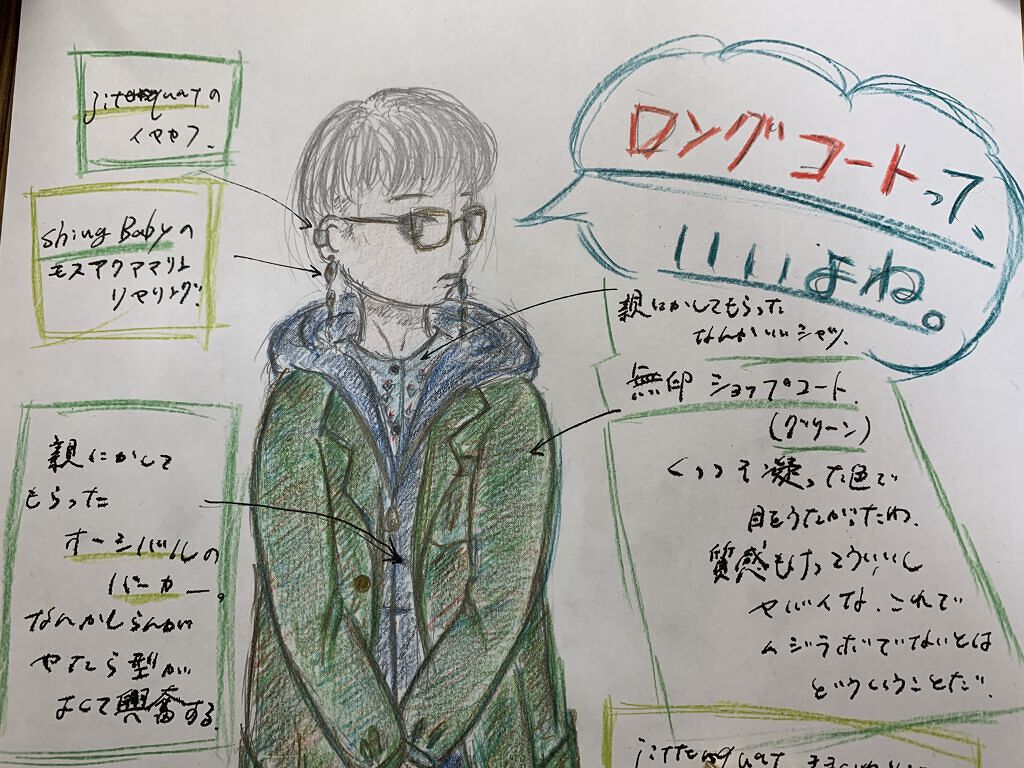 jitterquatの
イヤカフ、
Shing Babyの
モスアクアマリン
イヤリング!
ロングコートって、
いいよね。
親にかしてもらった
なんかいいシャツ、
無印 ショップコート
(グリーン)
くっっそ凝った色で
目をうたがったわ、
質感もけっこういいし
ヤバイな、これで
ムジラボでないとは
どういうことだ、
親にかして
もらった
オーシバルの
パーカー。
なんかしらんが
やたら型が
よくて興奮する、